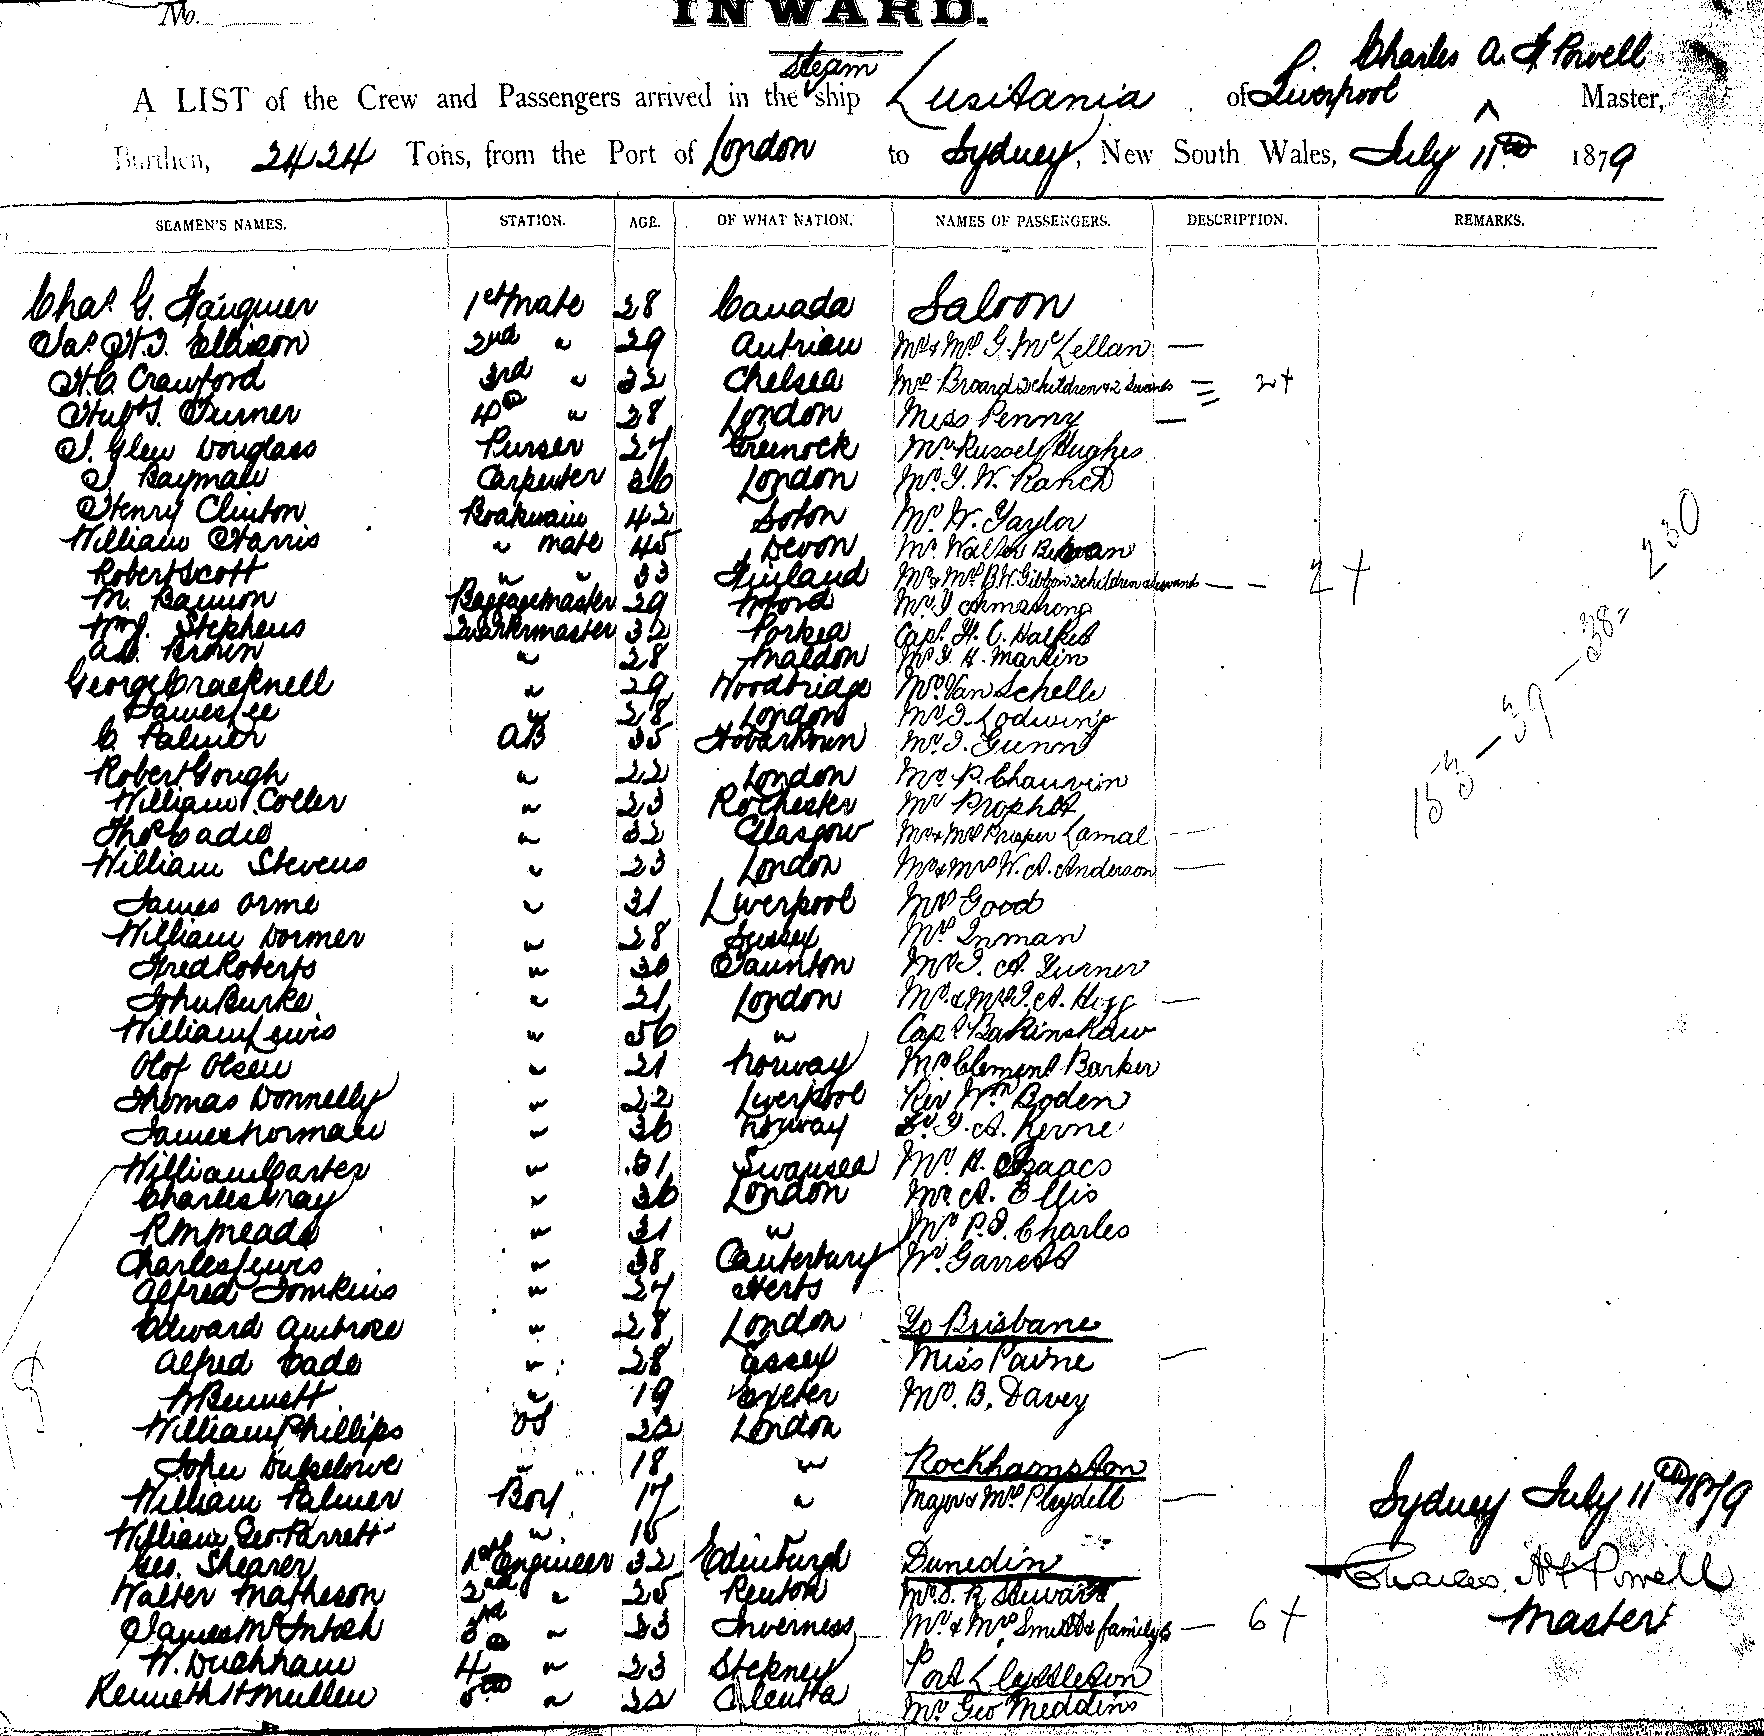 No.
INWARD.
steam Charles A. F Powell
A LIST of the Crew and Passengers arrived in the ship Lusitania of Liverpool Master,
Burthen, 2424 Tons, from the Port of London to Sydney, New South Wales, July 11th 1879
SEAMEN'S NAMES. STATION. AGE. OF WHAT NATION. NAMES OF PASSENGERS. DESCRIPTION. REMARKS.
Chas. G. Fauquier 1st mate 28 Canada Saloon
Jas. H. J. Ellison 2nd " 29 Mr & Mrs G. McLellan —
H. C. Crawford 3rd " 32 Chelsea Mrs Broard 2 children & 2 servants 2 +
Turner 4th " 28 London Miss Penny —
J. Glen Douglass Purser 27 Greenock Mr Russell Hughes
J. Bayman Carpenter 36 London Mr. J. W.
Henry Clinton 42 Soton Mr. W. Taylor
William Harris " mate 45 Devon Mr. Walter
Robert Scott " " 33 Finland Mr & Mrs B. W. Gibbon 2 children — — 2 +
M. Bannon Baggagemaster 29 Mr. J Armstrong
Wm J. Stephens Quartermaster 32 Portsea Capt. H. C.
Brown " 28 Maldon Mr J. H. Martin
George Cracknell " 29 Woodbridge Mr. Van Schelle
James Lee " 28 London Mr. J. Lodwing
C. Palmer AB 35 Hobartown Mr. J. Gunn
Robert Gough " 22 London Mr. P. Chauvin
William Coller " 23 Rochester Mr Prophet
Thos Eadie " 32 Glasgow Mr & Mrs Prosper Lamal —
William Stevens " 23 London Mr & Mrs W. A. Anderson —
James Orme " 31 Liverpool Mrs Good
William Dormer " 28 Sussex Mr. Inman
Fred Roberts " 30 Taunton Mr J. A. Turner
John Burke " 21 London Mr. & Mrs J. A. —
William Lewis " 56 " Capt
Olof Olsen " 21 Norway Mr Clement Barker
Thomas Donnelly " 22 Liverpool Rev Wm Boden
James Norman " 36 Norway Dr. J. A. Kerne
William Carter " 31 Swansea Mr. A. Isaacs
Charles Gray " 36 London Mr. A. Ellis
R M Meade " 31 " Mr. P. J. Charles
Charles Lewis " 38 Canterbury Mr. Garrett
Alfred Tomkins " 27 Herts
Edward Ambrose " 28 London To Brisbane
Alfred Cade " 28 Essex Miss Paine —
W Bennett " 19 Exeter Mr. B. Davey
William Phillips OS 22 London
John " 18 " Rockhampton
William Palmer Boy 17 " Major & Mrs Pleydell —
William Geo. Parrett " 15
Geo. Shearer 1st Engineer 32 Edinburgh Dunedin
Walter Matheson 2nd " 25 Renton Mr. J. R Stewart
James McIntosh 3rd " 33 Inverness Mr. & Mrs Smith & family — 6 +
W. Duckham 4th " 23 Stepney Port Lyttleton
Kenneth H Mullen 5th " 22 Mr. Geo Meddins
230
Sydney July 11th 1879
Charles A F Powell
Master